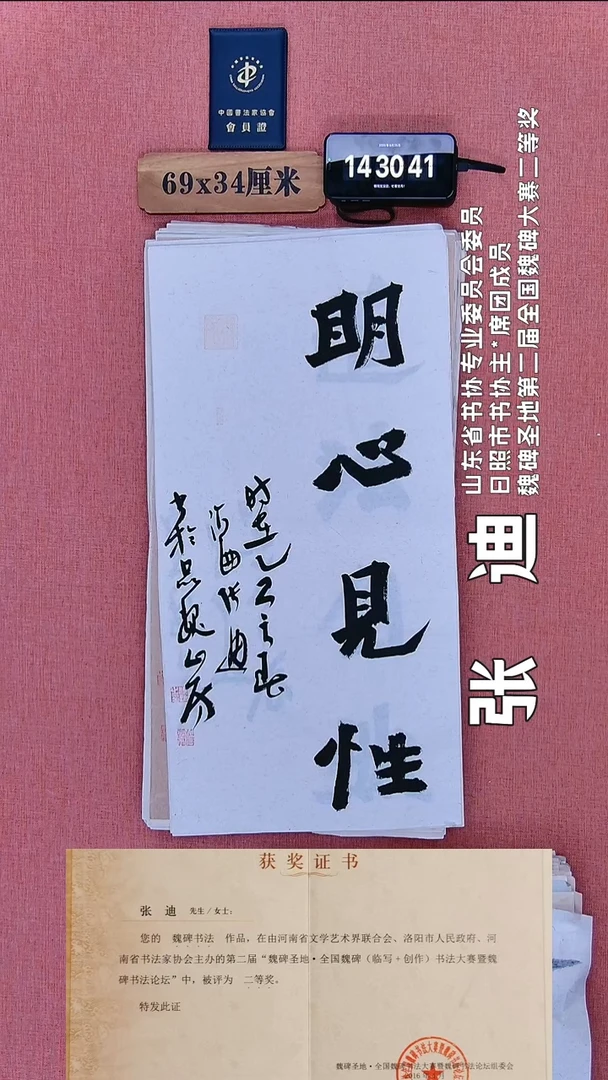 中國書法家協會
會員證
69x34厘米
14 30 41
明心見性
时在乙巳之春
张迪
山东省书协专业委员会委员
日照市书协主*席团成员
魏碑圣地第二届全国魏碑大赛二等奖
张 迪
获奖证书
张 迪 先生/女士:
您的 魏碑书法 作品，在由河南省文学艺术界联合会、洛阳市人民政府、河
南省书法家协会主办的第二届“魏碑圣地·全国魏碑（临写+创作）书法大赛暨魏
碑书法论坛”中，被评为 二等奖。
特发此证
魏碑圣地·全国魏碑书法大赛暨魏碑书法论坛组委会